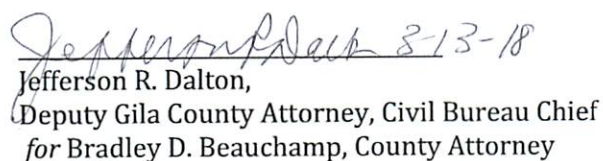 Jefferson R. Dalton 3-13-18
Jefferson R. Dalton,
Deputy Gila County Attorney, Civil Bureau Chief
for Bradley D. Beauchamp, County Attorney